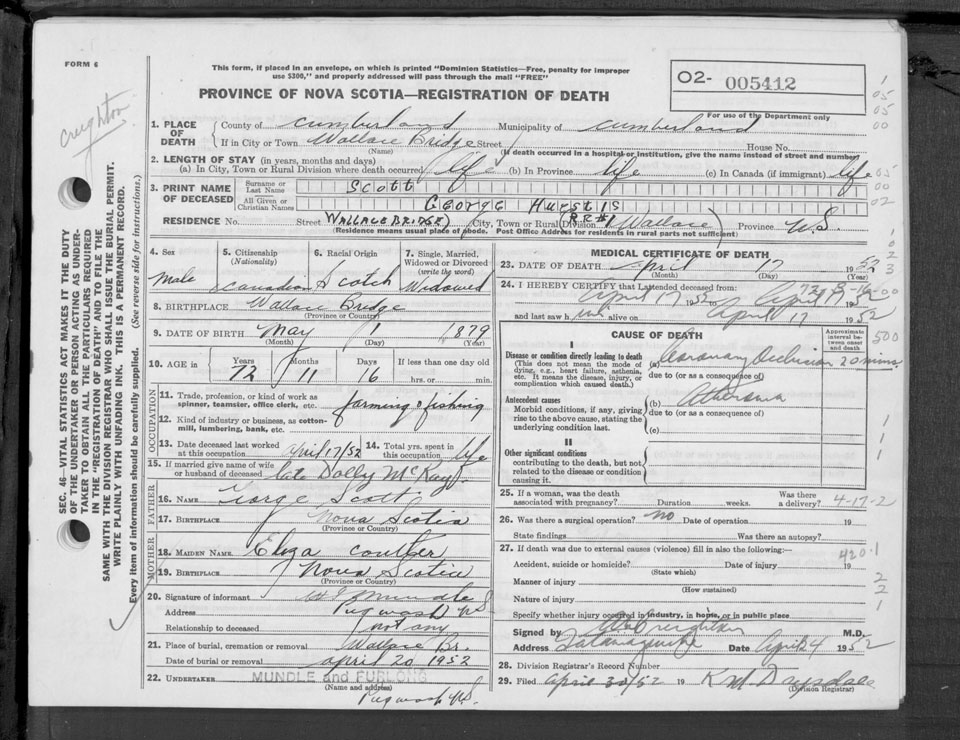 FORM 6
This form, if placed in an envelope, on which is printed "Dominion Statistics—Free, penalty for improper
use $300," and properly addressed will pass through the mail "FREE"
PROVINCE OF NOVA SCOTIA—REGISTRATION OF DEATH
O2- 005412
For use of the Department only
Creighton
1
05
05
00
SEC. 46—VITAL STATISTICS ACT MAKES IT THE DUTY
OF THE UNDERTAKER OR PERSON ACTING AS UNDER-
TAKER TO OBTAIN ALL THE PARTICULARS REQUIRED
IN THE "REGISTRATION OF DEATH" AND TO FILE THE
SAME WITH THE DIVISION REGISTRAR WHO SHALL ISSUE THE BURIAL PERMIT.
WRITE PLAINLY WITH UNFADING INK. THIS IS A PERMANENT RECORD.
Every item of information should be carefully supplied. (See reverse side for instructions.)
1. PLACE OF DEATH
County of Cumberland Municipality of Cumberland
If in City or Town Wallace Bridge Street House No.
(Name) (If death occurred in a hospital or institution, give the name instead of street and number)
2. LENGTH OF STAY (in years, months and days)
(a) In City, Town or Rural Division where death occurred life (b) In Province life (c) In Canada (if immigrant) life
05
00
02
3. PRINT NAME OF DECEASED
Surname or Last Name SCOTT
All Given or Christian Names GEORGE HURSTIS
RESIDENCE No. Street WALLACE BRIDGE City, Town or Rural Division (RR#1 Wallace) Province N.S.
(Residence means usual place of abode. Post Office Address for residents in rural parts not sufficient)
4. Sex
male
5. Citizenship
(Nationality)
Canadian
6. Racial Origin
Scotch
7. Single, Married,
Widowed or Divorced
(write the word)
Widowed
8. BIRTHPLACE Wallace Bridge
(Province or Country)
9. DATE OF BIRTH May 1 1879
(Month) (Day) (Year)
10. AGE in
Years Months Days If less than one day old
72 11 16 hrs. or min.
OCCUPATION
11. Trade, profession, or kind of work as
spinner, teamster, office clerk, etc. farming & fishing
12. Kind of industry or business, as cotton-
mill, lumbering, bank, etc.
13. Date deceased last worked
at this occupation April 17/52
14. Total yrs. spent in
this occupation life
15. If married give name of wife
or husband of deceased late Dolly McKay
FATHER
16. NAME George Scott
17. BIRTHPLACE Nova Scotia
(Province or Country)
MOTHER
18. MAIDEN NAME Eliza Coulter
19. BIRTHPLACE Nova Scotia
(Province or Country)
20. Signature of informant Mundle
Address Pugwash NS
Relationship to deceased not any
21. Place of burial, cremation or removal Wallace Br.
Date of burial or removal april 20 1952
22. UNDERTAKER MUNDLE and FURLONG
(Name and address)
Pugwash NS.
MEDICAL CERTIFICATE OF DEATH
23. DATE OF DEATH April 17 1952
(Month) (Day) (Year)
24. I HEREBY CERTIFY that I attended deceased from:
April 17 1952 to April 17 1952
and last saw him alive on April 17 1952
CAUSE OF DEATH
Approximate
interval be-
tween onset
and death
500
I
Disease or condition directly leading to death
(This does not mean the mode of
dying, e.g., heart failure, asthenia,
etc. It means the disease, injury, or
complication which caused death.)
(a) Coronary Occlusion 20 mins
due to (or as a consequence of)
Antecedent causes
Morbid conditions, if any, giving
rise to the above cause, stating the
underlying condition last.
(b) Atheroma
due to (or as a consequence of)
(c)
II
Other significant conditions
contributing to the death, but not
related to the disease or condition
causing it.
1
1
1
25. If a woman, was the
death associated with pregnancy? Duration weeks. Was there a delivery?
4-17-2
26. Was there a surgical operation? no Date of operation 19
State findings Was there an autopsy?
27. If death was due to external causes (violence) fill in also the following:—
420.1
Accident, suicide or homicide? Date of injury 19
(State which)
Manner of injury
(How sustained)
Nature of injury
2
2
1
Specify whether injury occurred in industry, in home, or in public place
Signed by Creighton M.D.
Address Tatamagouche Date April 24 1952
28. Division Registrar's Record Number
29. Filed April 30/52 19 K M Drysdale
(Division Registrar)